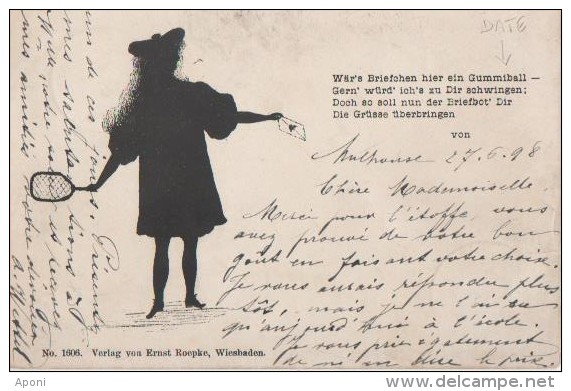 DATE
Wär's Briefchen hier ein Gummiball —
Gern' würd' ich's zu Dir schwingen;
Doch so soll nun der Briefbot' Dir
Die Grüsse überbringen
von
Mulhouse 27.6.98
Chère Mademoiselle.
Merci pour l'étoffe, vous
avez prouvé de votre bon
goût en faisant votre choix.
Je vous aurais répondu plus
tôt, mais je ne l'ai su
qu'aujourd'hui à l'école.
Je vous prie également
de m'en dire le prix.
un de ces jours.
mes
mes amitiés
No. 1606. Verlag von Ernst Roepke, Wiesbaden.
Aponi
http://www.delcampe.net